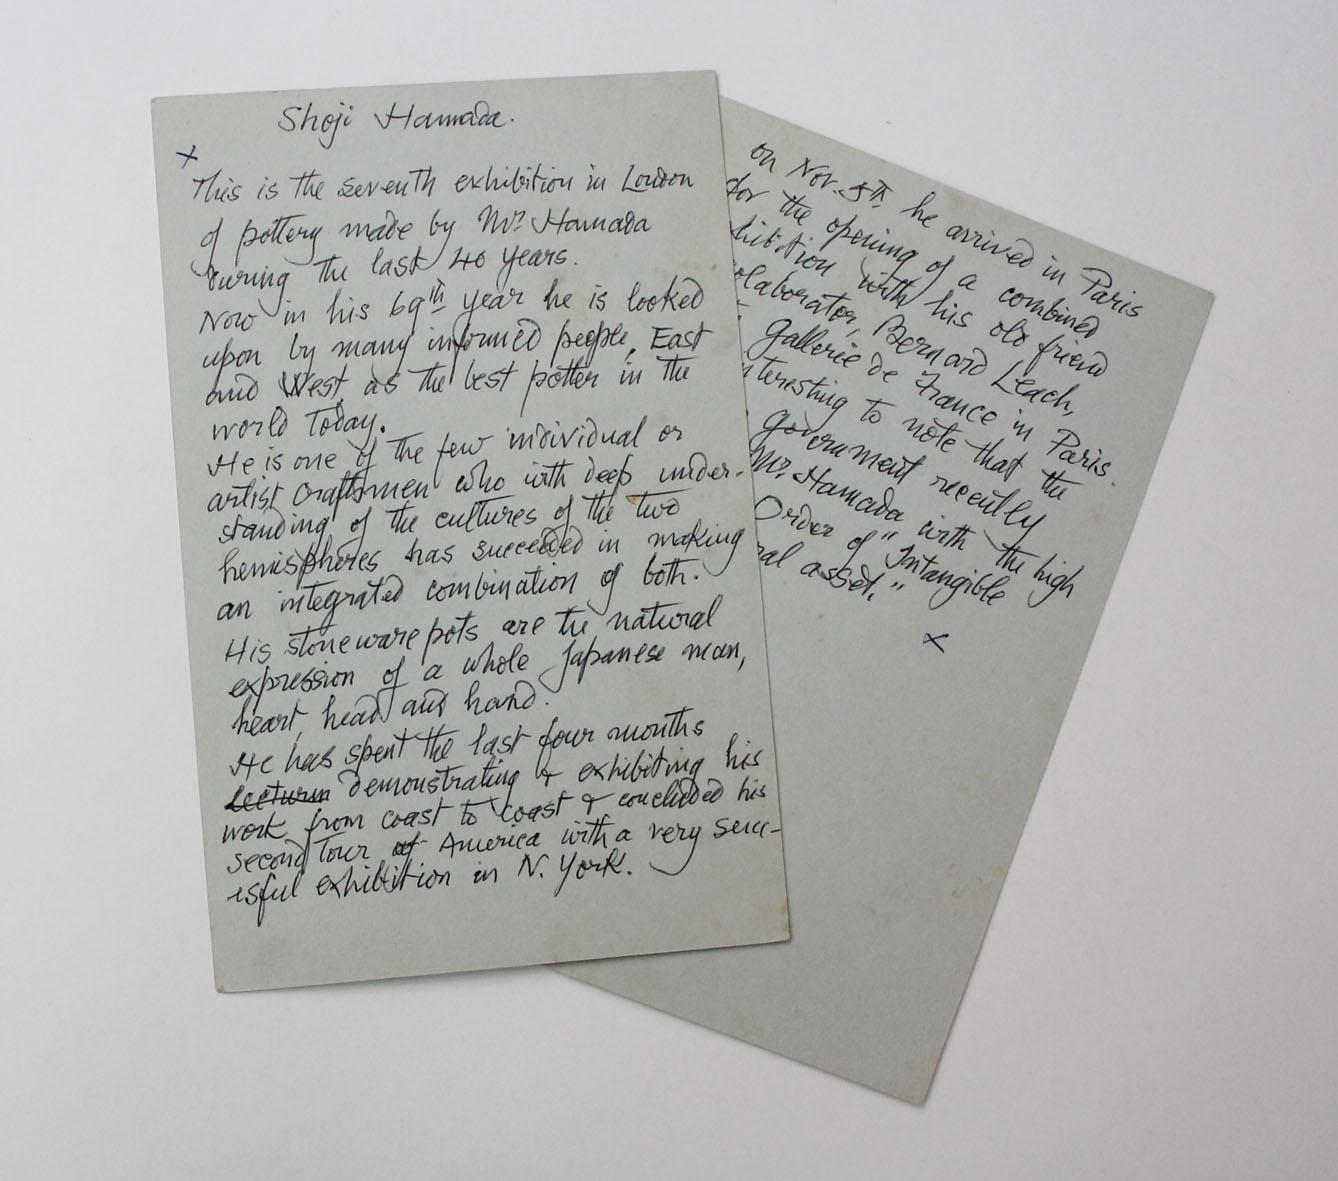 Shoji Hamada.
x
This is the seventh exhibition in London
of pottery made by Mr. Hamada
during the last 40 years.
Now in his 69th year he is looked
upon by many informed people, East
and West, as the best potter in the
world today.
He is one of the few individual or
artist craftsmen who with deep under-
standing of the cultures of the two
hemispheres has succeeded in making
an integrated combination of both.
His stoneware pots are the natural
expression of a whole Japanese man,
heart, head and hand.
He has spent the last four months
demonstrating & exhibiting his
work from coast to coast & concluded his
second tour of America with a very succ-
esful exhibition in N. York.
on Nov. 5th, he arrived in Paris
for the opening of a combined
hibition with his old friend
olaborator, Bernard Leach,
Gallerie de France in Paris.
nteresting to note that the
government recently
Mr. Hamada with the high
Order of "Intangible
ral asset."
x